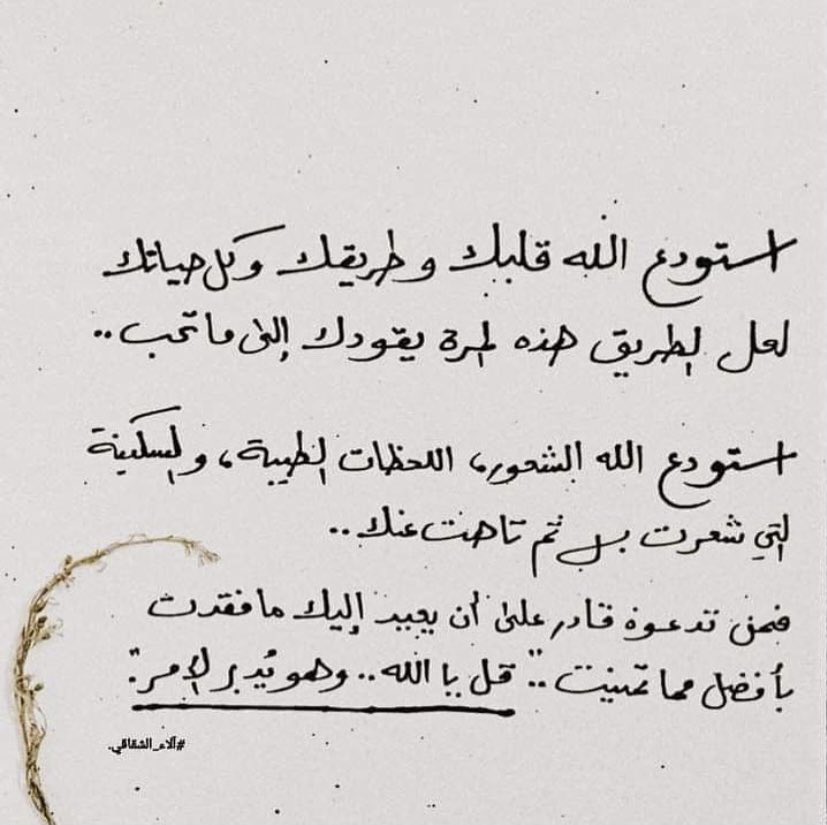 استودع الله قلبك وطريقك وكل حياتك
لعل الطريق هذه المرة يقودك إلى ما تحب..
استودع الله الشعور، اللحظات الطيبة، والسكينة
التي شعرت بها ثم تاهت عنك..
فمن تدعوه قادر على أن يعيد إليك ما فقدت
بأفضل مما تمنيت.. "قل يا الله.. وهو يُدبر الأمر".
#آلاء_الشقاقي.